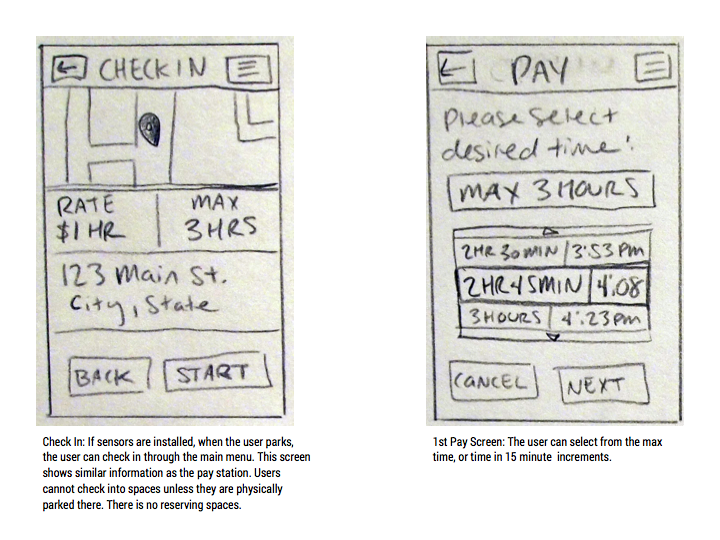 CHECK IN
RATE
$1 HR
MAX
3 HRS
123 Main St.
City, State
BACK
START
Check In: If sensors are installed, when the user parks,
the user can check in through the main menu. This screen
shows similar information as the pay station. Users
cannot check into spaces unless they are physically
parked there. There is no reserving spaces.
PAY
Please Select
desired time:
MAX 3 HOURS
2HR 30MIN 3:53PM
2HR 45MIN 4:08
3HOURS 4:23pm
CANCEL
NEXT
1st Pay Screen: The user can select from the max
time, or time in 15 minute increments.